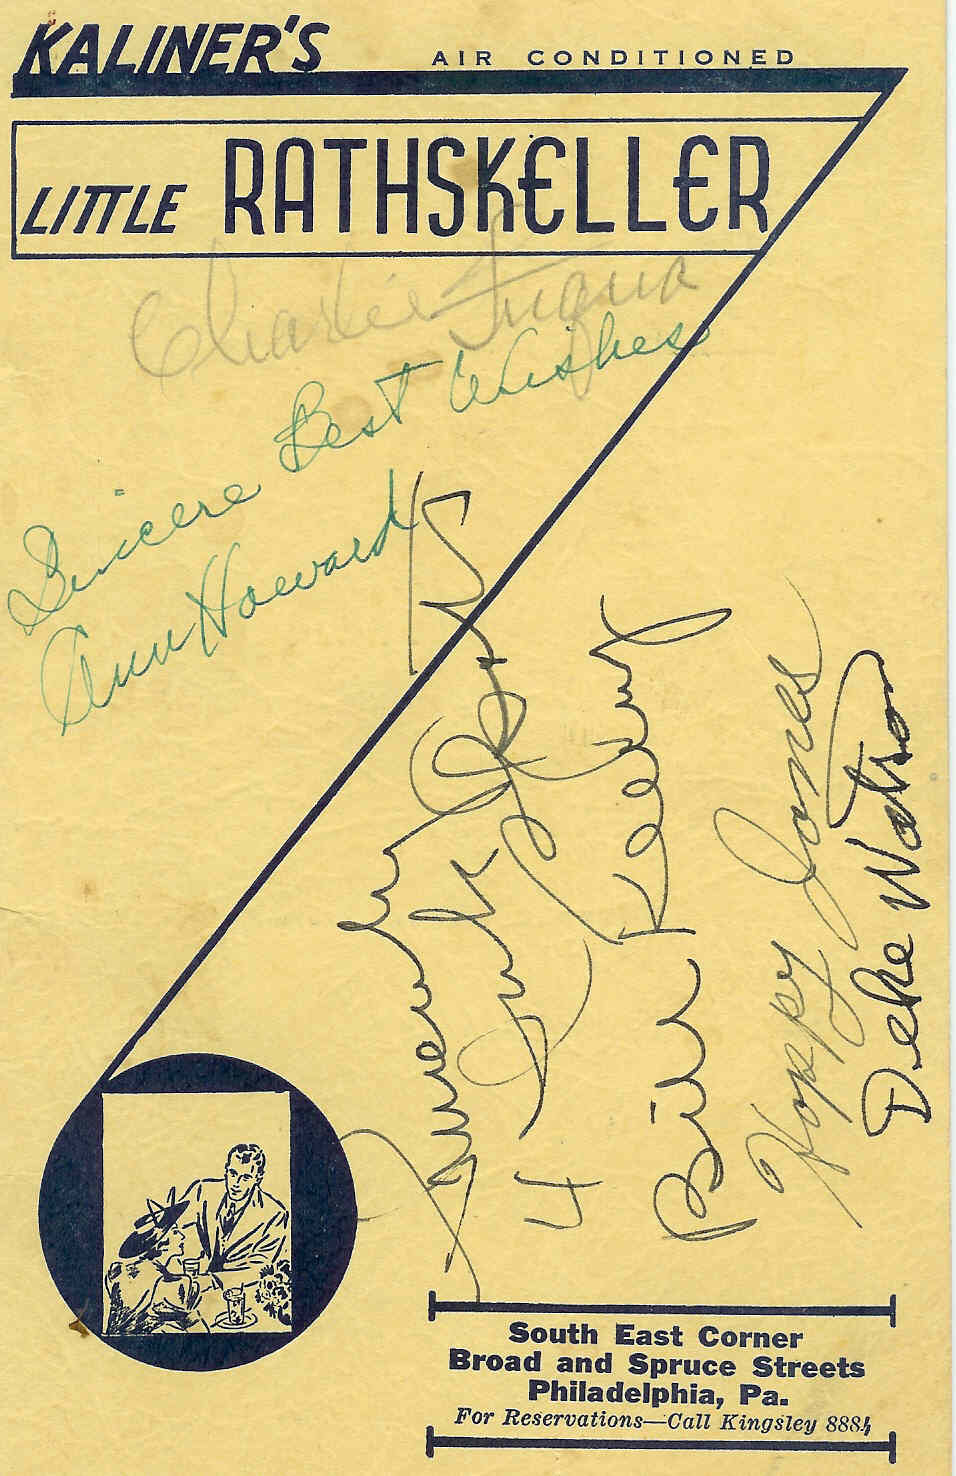 KALINER'S
AIR CONDITIONED
LITTLE RATHSKELLER
Charlie
Sincere Best Wishes
Ann Howard
4 Ink Spots
Bill Kenny
Hoppy Jones
Deke Watson
South East Corner
Broad and Spruce Streets
Philadelphia, Pa.
For Reservations—Call Kingsley 8884